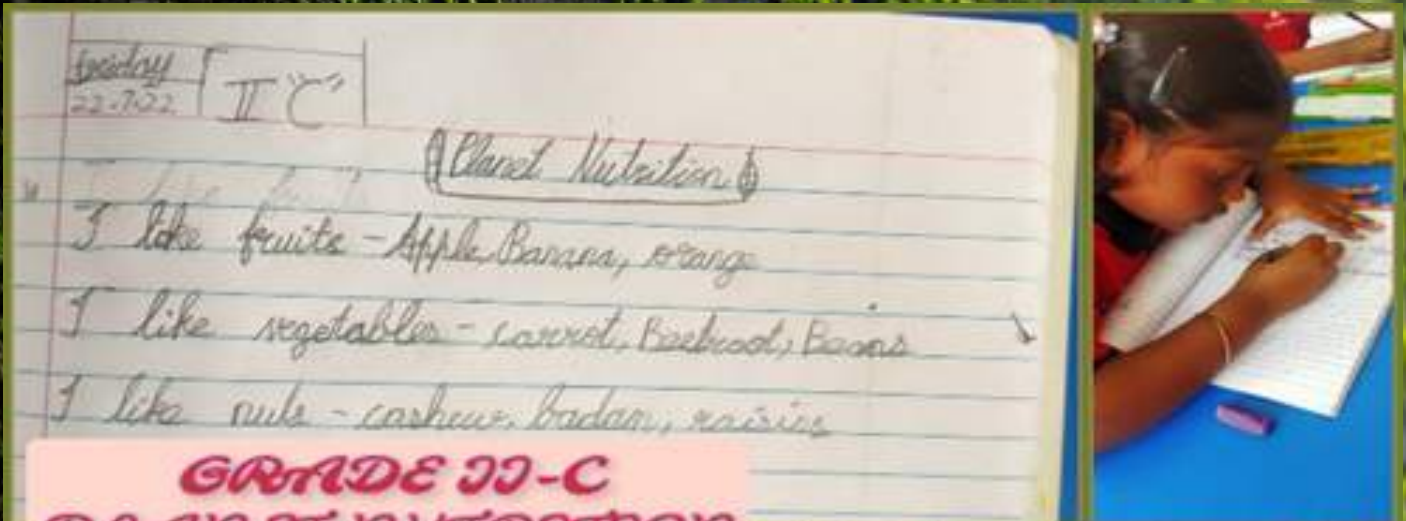 Friday
22-7-22
II "C"
Planet Nutrition
I like fruits - Apple, Banana, orange
I like vegetables - carrot, Beetroot, Beans
I like nuts - cashew, badan, raisins
GRADE II-C
PLANET NUTRITION